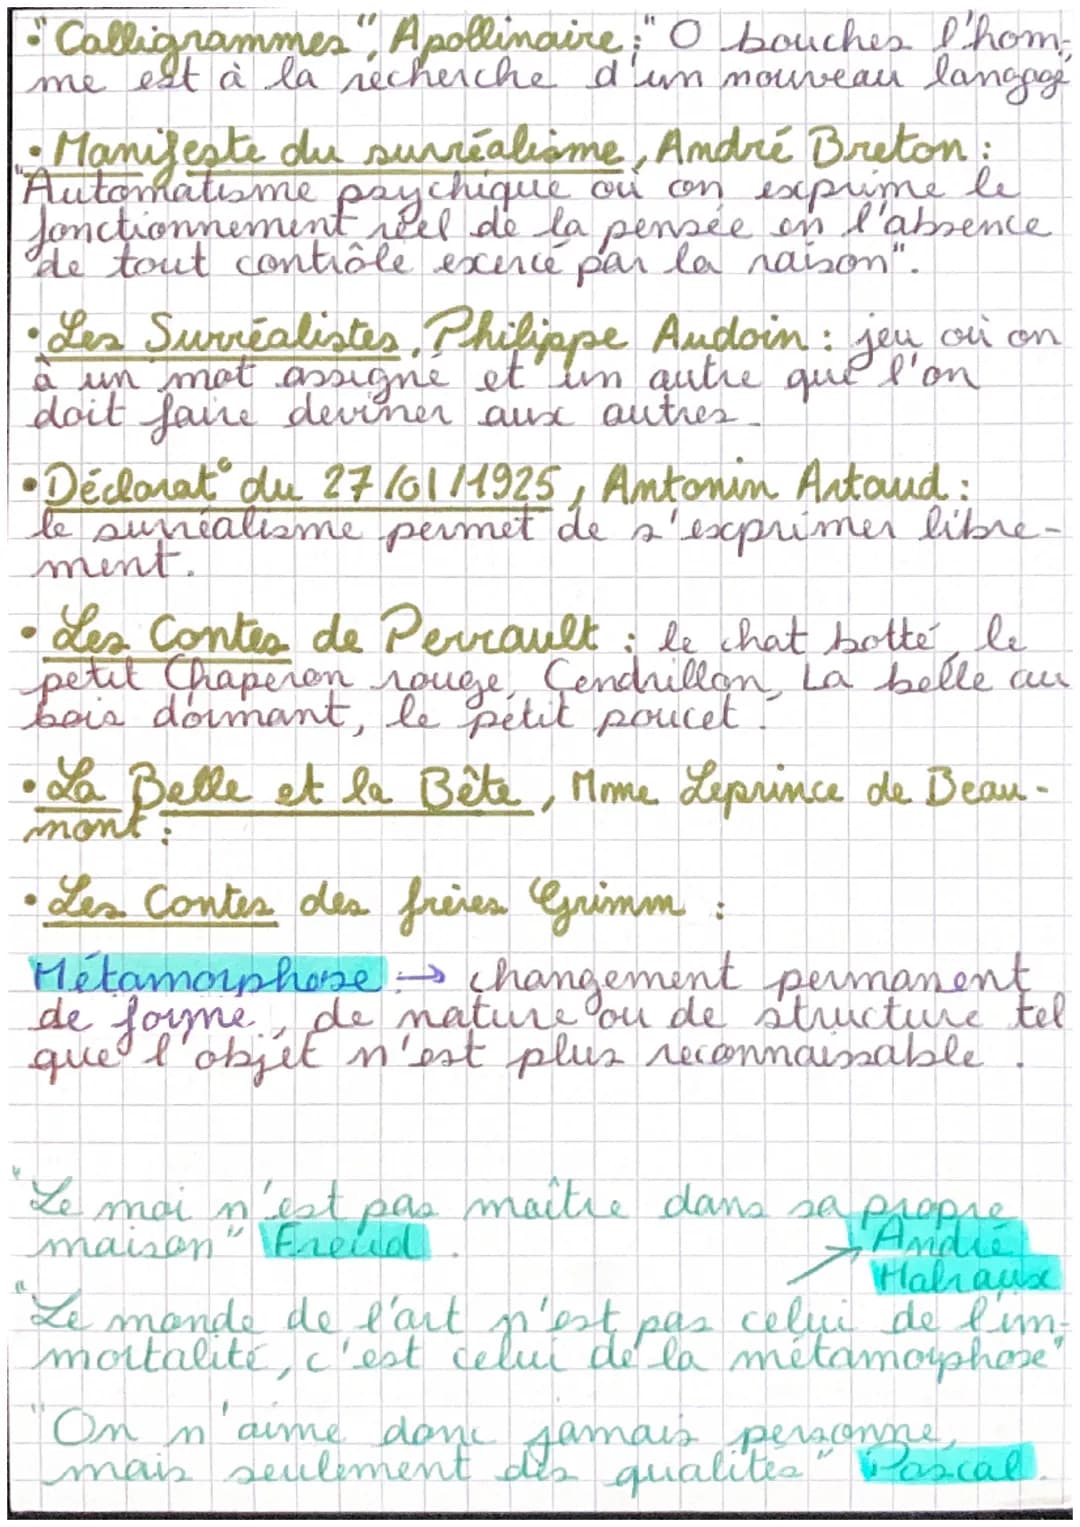 • "Calligrammes", Apollinaire : "O bouches l'hom-
me est à la recherche d'un nouveau langage"
• Manifeste du surréalisme, André Breton :
"Automatisme psychique où on exprime le
fonctionnement réel de la pensée en l'absence
de tout contrôle exercé par la raison".
• Les Surréalistes, Philippe Audoin : jeu où on
à un mot assigné et un autre que l'on
doit faire deviner aux autres.
• Déclarat° du 27/01/1925, Antonin Artaud :
le surréalisme permet de s'exprimer libre-
ment.
• Les Contes de Perrault : le chat botté, le
petit Chaperon rouge, Cendrillon, La belle au
bois dormant, le petit poucet.
• La Belle et la Bête, Mme Leprince de Beau-
mont :
• Les Contes des frères Grimm :
Métamorphose : → changement permanent
de forme, de nature ou de structure tel
que l'objet n'est plus reconnaissable.
"Le moi n'est pas maître dans sa propre
maison" Freud.
André
Malraux
"Le monde de l'art n'est pas celui de l'im-
mortalité, c'est celui de la métamorphose"
"On n'aime donc jamais personne,
mais seulement des qualités" Pascal.